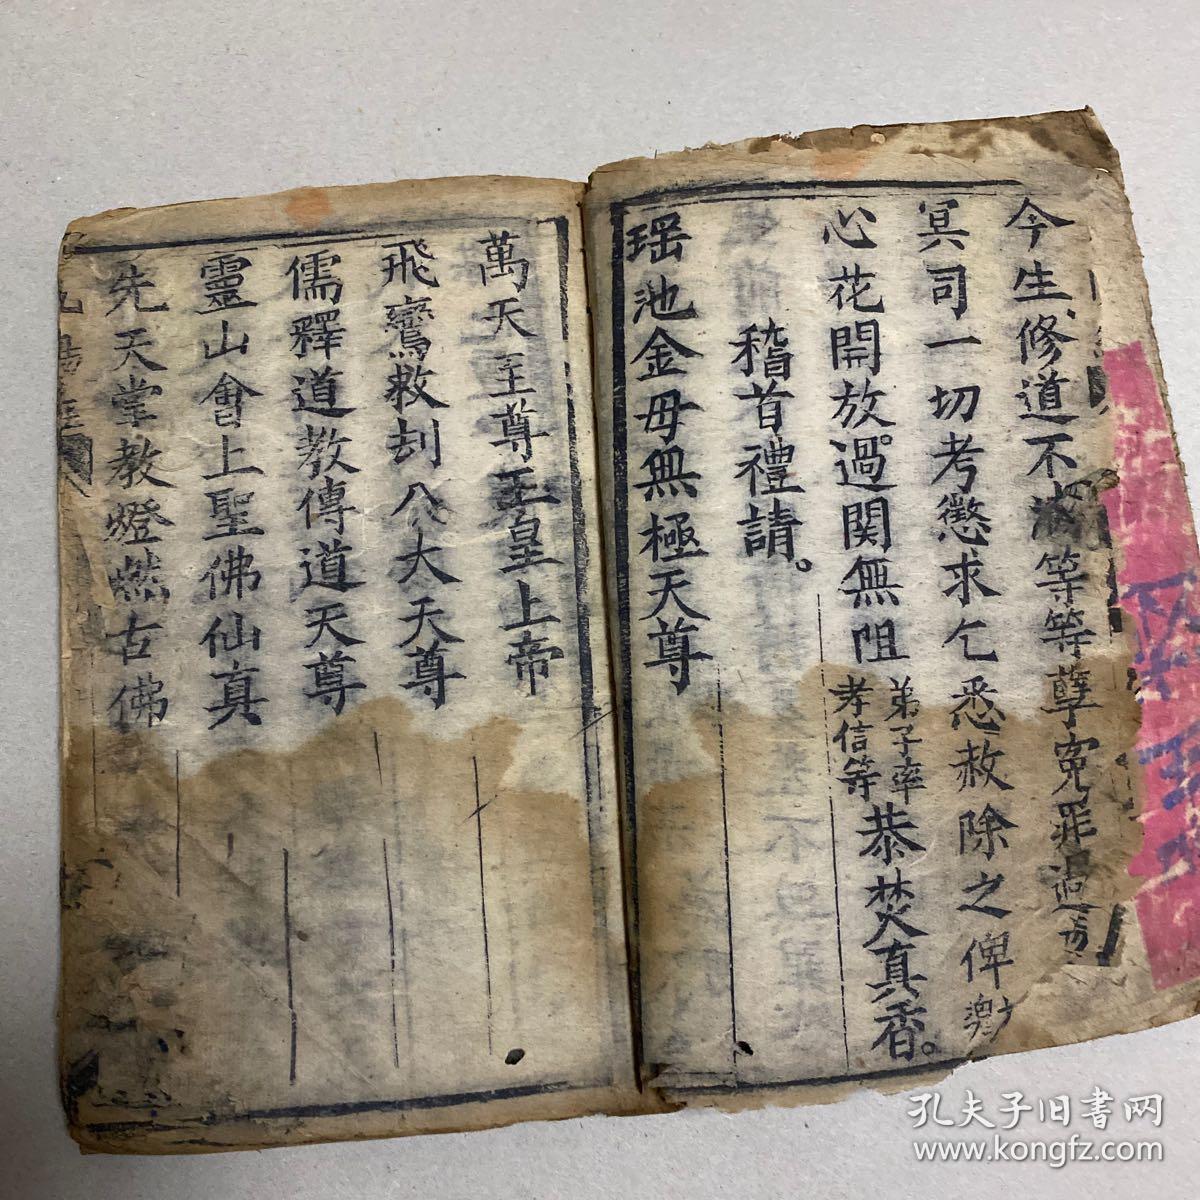 今生修道不滿等等孽冤罪過
冥司一切考懲求乞悉赦除之俾
心花開放。過関無阻
弟子率
孝信等
恭焚真香。
稽首禮請。
瑶池金母無極天尊
萬天主尊玉皇上帝
飛鸞救刦八大天尊
儒釋道教傳道天尊
靈山會上聖佛仙真
先天掌教燈燃古佛
孔夫子旧書网
www.kongfz.com